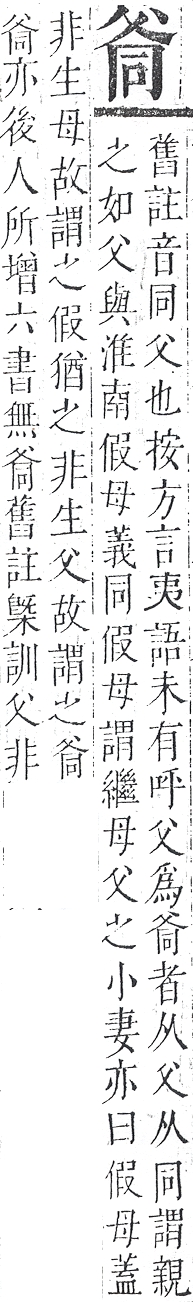 ⿱父同
舊註音同父也按方言夷語未有呼父爲⿱父同者从父从同謂親
之如父與淮南假母義同假母謂繼母父之小妻亦曰假母蓋
非生母故謂之假猶之非生父故謂之⿱父同
⿱父同亦後人所增六書無⿱父同舊註槩訓父非